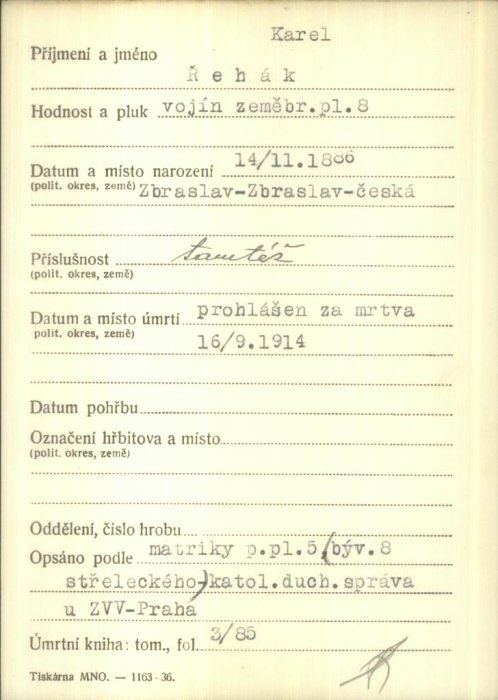 Karel
Příjmení a jméno
Řehák
Hodnost a pluk vojín zeměbr.pl.8
Datum a místo narození 14/11.1886
(polit. okres, země) Zbraslav-Zbraslav-česká
Příslušnost tamtéž
(polit. okres, země)
Datum a místo úmrtí prohlášen za mrtva
polit. okres, země) 16/9.1914
Datum pohřbu
Označení hřbitova a místo
(polit. okres, země)
Oddělení, číslo hrobu
Opsáno podle matriky p.pl.5,(býv.8
střeleckého)katol.duch.správa
u ZVV-Praha
Úmrtní kniha: tom., fol. 3/85
Tiskárna MNO. — 1163-36.